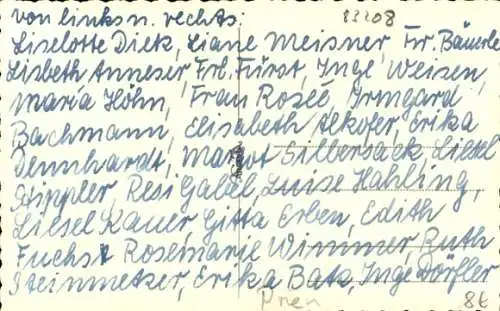 von links n. rechts: 83208
Liselotte Dietz, Liane Meisner, Fr. Bäuerle
Lisbeth Anneser, Frl. Fürst, Inge Weisen,
Maria Höhn, Frau Roseé, Irmgard
Bachmann, Elisabeth Alkofer, Erika
Dennhardt, Margot Silbersack, Liesel
Hippler, Resi Gabel, Luise Hahling,
Liesel Kauer Gitta Erben, Edith
Fuchs Rosemarie Wimmer, Ruth
Steinmetzer, Erika Batz, Inge Dörfler
Prien 8€